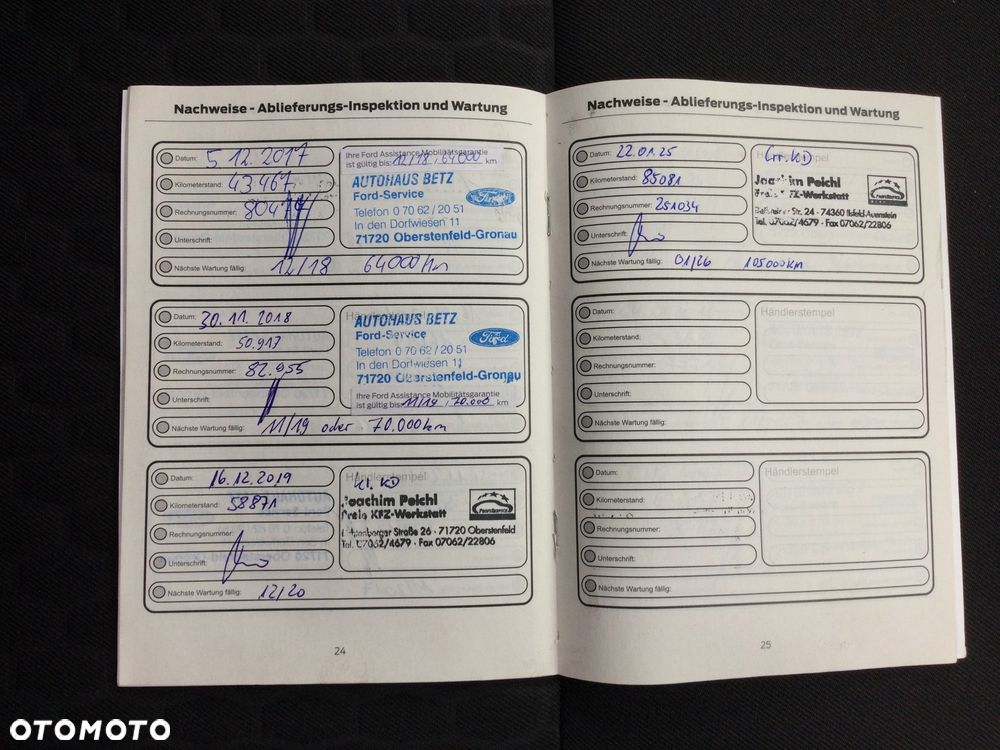 Nachweise - Ablieferungs-Inspektion und Wartung
Datum: 5 12.2017
Kilometerstand: 43467
Rechnungsnummer:
Unterschrift:
Nächste Wartung fällig: 12/18 64000 km
Ihre Ford Assistance Mobilitätsgarantie
ist gültig bis: 12/18 , 64000 km
AUTOHAUS BETZ
Ford-Service
Telefon 0 70 62 / 20 51
In den Dorfwiesen 11
71720 Oberstenfeld-Gronau
Ford
Datum: 30.11.2018
Kilometerstand: 50.917
Rechnungsnummer: 82.955
Unterschrift:
Nächste Wartung fällig: 11/19 oder 70.000km
Händlerstempel
AUTOHAUS BETZ
Ford-Service
Telefon 0 70 62 / 20 51
In den Dorfwiesen 11
71720 Oberstenfeld-Gronau
Ford
Ihre Ford Assistance Mobilitätsgarantie
ist gültig bis: 11/19 , 70.000 km
Datum: 16.12.2019
Kilometerstand: 58871
Rechnungsnummer:
Unterschrift:
Nächste Wartung fällig: 12/20
Händlerstempel
Kl. KD
Joachim Peichl
Freie KFZ-Werkstatt
Straße 26 · 71720 Oberstenfeld
Tel. 07062/4679 · Fax 07062/22806
24
Nachweise - Ablieferungs-Inspektion und Wartung
Datum: 22.01.25
Kilometerstand: 85081
Rechnungsnummer: 251034
Unterschrift:
Nächste Wartung fällig: 01/26 105000KM
Händlerstempel
Gr. KD
Joachim Peichl
Freie KFZ-Werkstatt
Str. 24 · 74360 Ilsfeld-Auenstein
Tel. 07062/4679 · Fax 07062/22806
Datum:
Kilometerstand:
Rechnungsnummer:
Unterschrift:
Nächste Wartung fällig:
Händlerstempel
Datum:
Kilometerstand:
Rechnungsnummer:
Unterschrift:
Nächste Wartung fällig:
Händlerstempel
25
OTOMOTO